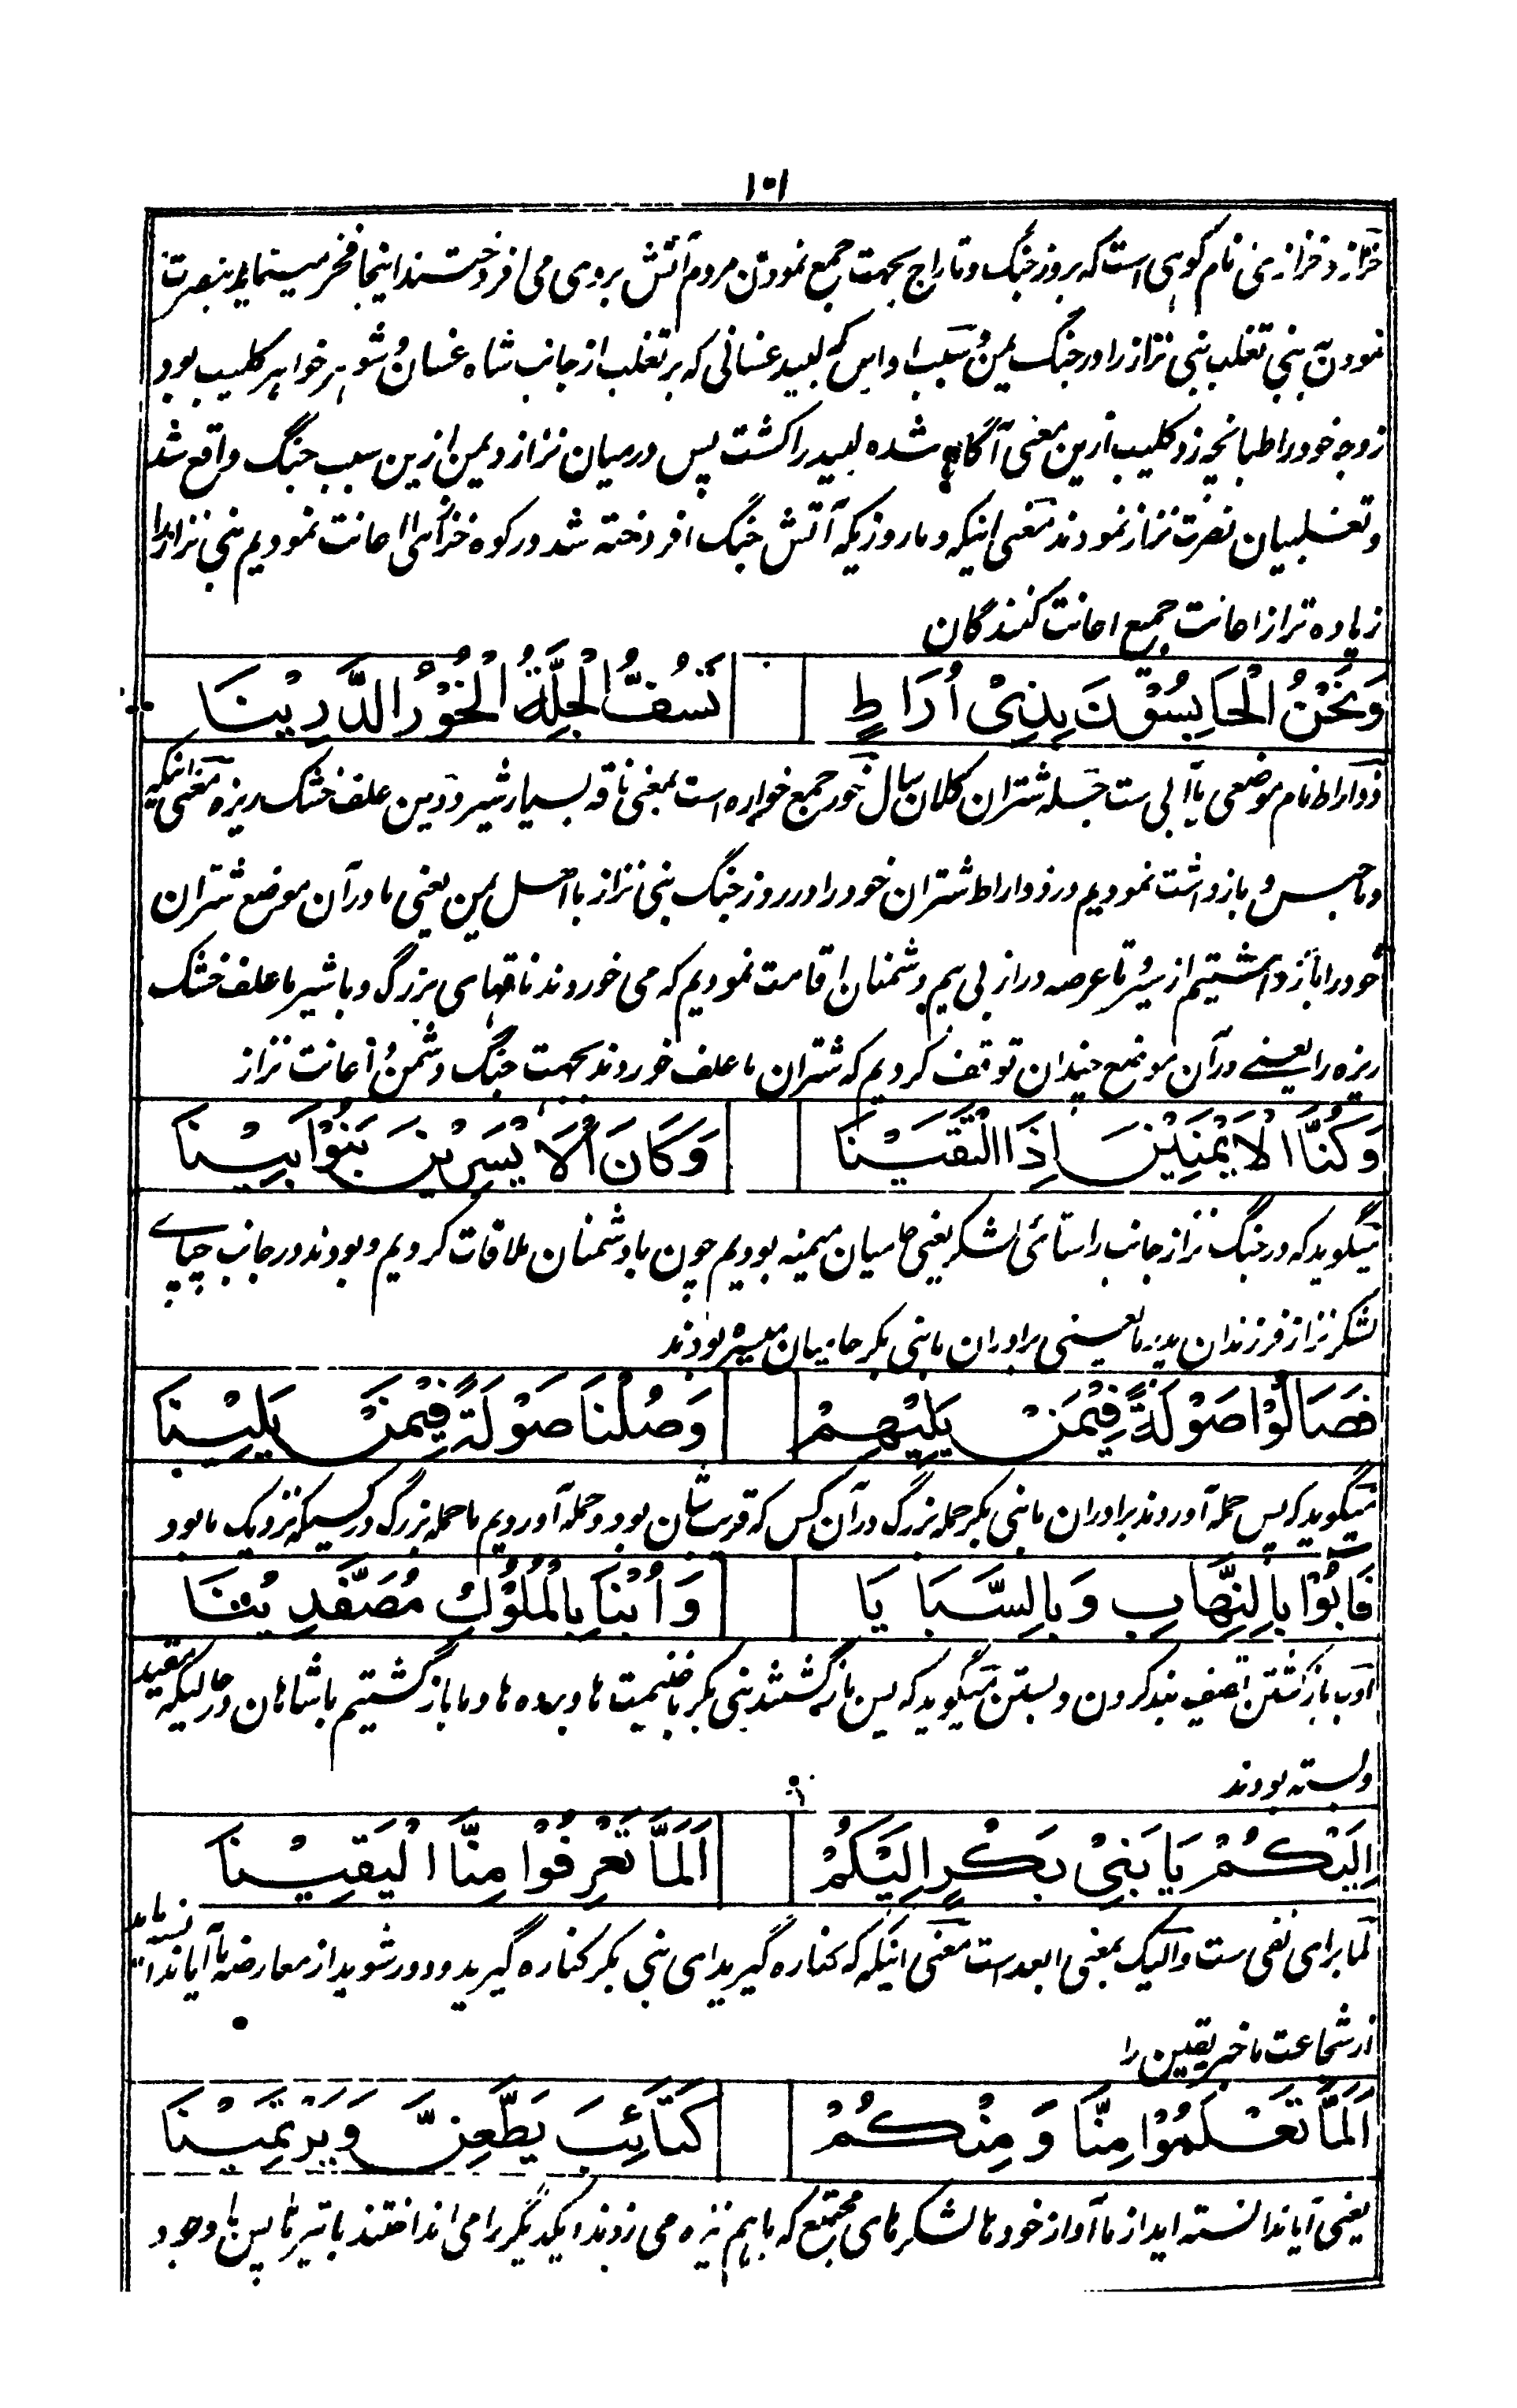 ۱۰۱
خزاز و خزازی نام کوهی است که بروز جنگ و تاراج بجهت جمع نمودن مردم آتش بروی می افروختند اینجا فخر مینماید بنصرت
نمودن بنی تغلب بنی نزار را در جنگ یمن و سبب او این که لبید غسانی که بر تغلب از جانب شاه غسان و شوهر خواهر کلیب بود
زوجه خود را طبانچه زد کلیب ازین معنی آگاه شده لبید را کشت پس درمیان نزار و یمن ازین سبب جنگ واقع شد
و تغلبیان نصرت نزار نمودند معنی اینکه و ما روزیکه آتش جنگ افروخته شد در کوه خزازی اعانت نمودیم بنی نزار را
زیاده تر از اعانت جمیع اعانت کنندگان
وَنَحْنُ الْحَابِسُوْنَ بِذِیْ اُرَاطٍ تَسُفُّ الْجِلَّةُ الْخُوْرُ الدَّرِیْنَا
ذواراط نام موضعی یا آبی ست جله شتران کلان سال خور جمع خواره است بمعنی ناقه بسیار شیر و درین علف خشک ریزه معنی اینکه
و ما حبس و بازداشت نمودیم در ذواراط شتران خود را در روز جنگ بنی نزار با اهل یمن یعنی ما در آن موضع شتران
خود را باز داشتیم از سیر و تا عرصه دراز بی بیم دشمنان اقامت نمودیم که می خوردند ناقهای بزرگ و با شیر ما علف خشک
ریزه را یعنی در آن موضع چندان توقف کردیم که شتران ما علف خوردند بجهت جنگ دشمن و اعانت نزار
وَكُنَّا الْاَیْمَنِیْنَ اِذَا الْتَقَیْنَا وَكَانَ الْاَیْسَرِیْنَ بَنُوْ اَبِیْنَا
میگوید که در جنگ نزار جانب راستائی لشکر یعنی حامیان میمنه بودیم چون با دشمنان ملاقات کردیم و بودند در جانب چپای
لشکر نزار فرزندان پدر ما یعنی برادران ما بنی بکر حامیان میسره بودند
فَصَالُوْا صَوْلَةً فِیْمَنْ یَلِیْهِمْ وَصُلْنَا صَوْلَةً فِیْمَنْ یَلِیْنَا
میگوید که پس حمله آوردند برادران ما بنی بکر حمله بزرگ در آن کس که قریب شان بود و حمله آوردیم ما حمله بزرگ در کسیکه نزدیک ما بود
فَاٰبُوْا بِالنِّهَابِ وَبِالسَّبَایَا وَاُبْنَا بِالْمُلُوْكِ مُصَفَّدِیْنَا
اوب بازگشتن تصفید بند کردن و بستن میگوید که پس بازگشتند بنی بکر با غنیمت ها و برده ها و ما بازگشتیم با شاهان در حالیکه مقید
و بسته بودند
اِلَیْكُمْ یَا بَنِیْ بَكْرٍ اِلَیْكُمْ اَلَمَّا تَعْرِفُوْا مِنَّا الْیَقِیْنَا
لما برای نفی ست و الیک بمعنی ابعد است معنی اینکه که کناره گیرید ای بنی بکر کناره گیرید و دور شوید از معارضه ما آیا ندانسته اید
از شجاعت ما خبر یقین را
اَلَمَّا تَعْلَمُوْا مِنَّا وَمِنْكُمْ كَتَائِبَ یَطَّعِنَّ وَیَرْتَمِیْنَا
یعنی آیا ندانسته اید از ما و از خود ها لشکرهای مجتمع که باهم نیزه می زدند و یکدیگر را می انداختند با تیرها پس با وجود